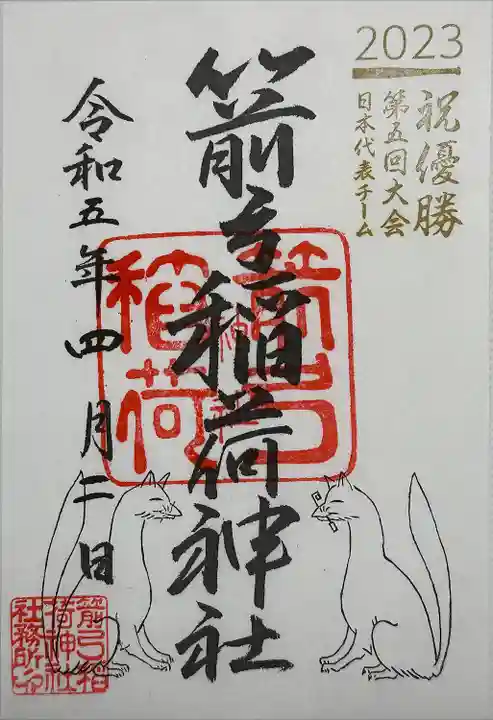 2023
祝優勝
第五回大会
日本代表チーム
箭弓稲荷神社
令和五年四月二日
箭弓
稲荷
箭弓稲
荷神社
社務所印